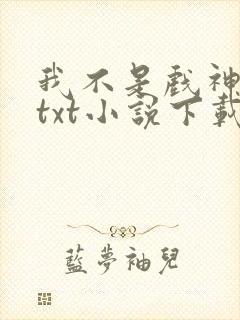 我不是戲神
txt小說下載
藍夢袖兒